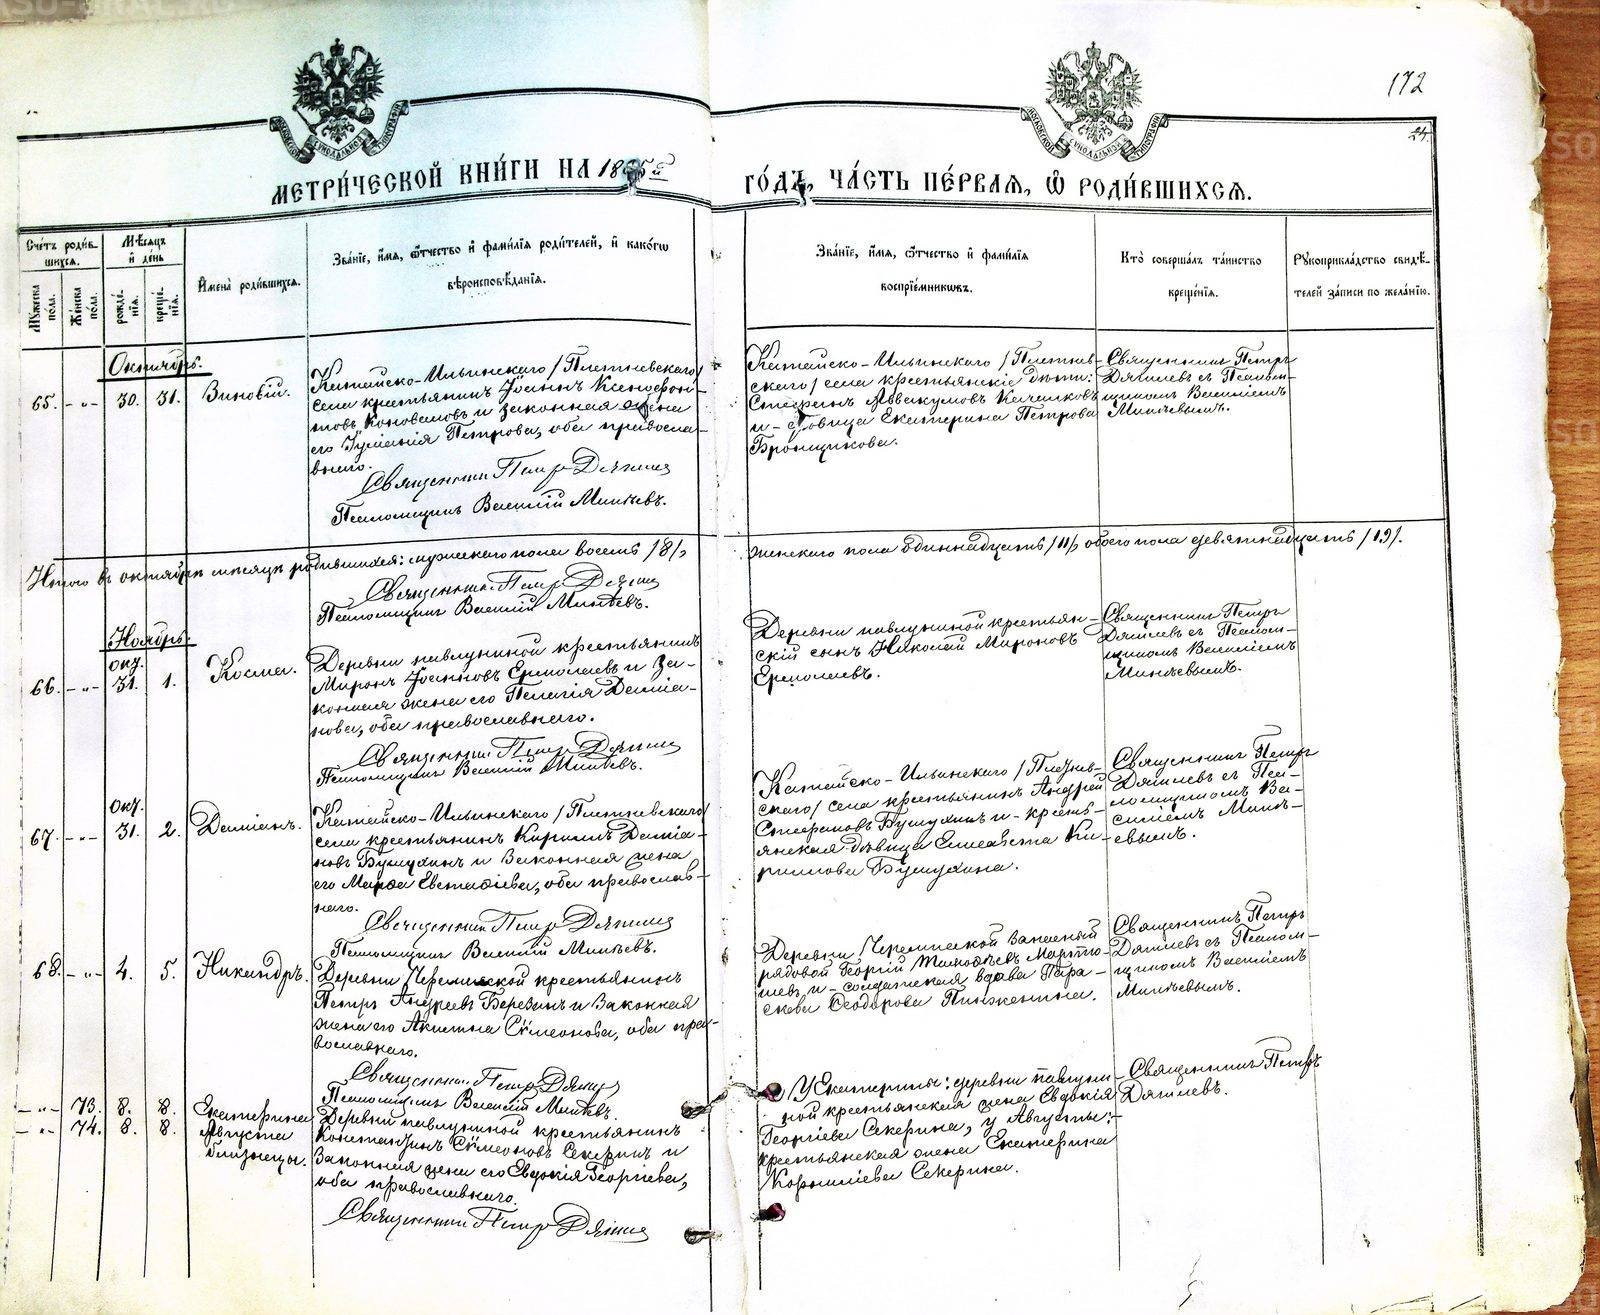 172
24.
МЕТРИ́ЧЕСКОЙ КНИ́ГИ НА 1885й ГО́ДЪ, ЧА́СТЬ ПЕ́РВАЯ, Ѡ҆ РОДИ́ВШИХСЯ.
Сче́тъ роди́вшихся.
Му́жеска по́ла.
Же́нска по́ла.
Мѣ́сяцъ и҆ де́нь
рожде́нїя.
креще́нїя.
И҆мена̀ роди́вшихся.
Зва́нїе, и҆́мя, ѻ҆́тчество и҆ фами́лїя роди́телей, и҆ како́гѡ
вѣроисповѣ́данїя.
Зва́нїе, и҆́мя, ѻ҆́тчество и҆ фами́лїя
воспрїе́мникѡвъ.
Кто̀ соверша́лъ та́инство
креще́нїя.
Рꙋкоприкла́дство свидѣ́-
телей за́писи по жела́нїю.
Октябрь.
65. - „ - 30. 31. Зиновій.
Катайско-Ильинскаго /Плетневскаго/
села крестьянинъ Іоаннъ Ксенофон-
товъ Коноваловъ и законная жена
его Іуліанія Петрова, оба правосла-
внаго.
Священникъ Петръ Дягилевъ
Псаломщикъ Василій Минѣевъ.
Катайско-Ильинскаго /Плетнев-
скаго/ села крестьянскіе дѣти:
Стефанъ Аввакумовъ
и дѣвица Екатерина Петрова
Бронщикова.
Священникъ Петръ
Дягилевъ съ Псалом-
щикомъ Василіемъ
Минѣевымъ.
Итого въ октябрѣ мѣсяцѣ родившихся: мужескаго пола восемь /8/, женскаго пола одиннадцать /11/, обоего пола девятнадцать /19/.
Священникъ Петръ Дягилевъ
Псаломщикъ Василій Минѣевъ.
Ноябрь.
окт.
66. - „ - 31. 1. Косма.
Деревни Павлуниной крестьянинъ
Миронъ Іоанновъ Ермолаевъ и За-
конная жена его Пелагія Даміа-
нова, оба православнаго.
Священникъ Петръ Дягилевъ
Псаломщикъ Василій Минѣевъ.
Деревни Павлуниной крестьян-
скій сынъ Николай Мироновъ
Ермолаевъ.
Священникъ Петръ
Дягилевъ съ Псалом-
щикомъ Василіемъ
Минѣевымъ.
окт.
67. - „ - 31. 2. Даміанъ.
Катайско-Ильинскаго /Плетневскаго/
села крестьянинъ Кириллъ Даміа-
новъ Бушухинъ и Законная жена
его Марѳа Евстаѳіева, оба православ-
наго.
Священникъ Петръ Дягилевъ
Псаломщикъ Василій Минѣевъ.
Катайско-Ильинскаго /Плетнев-
скаго/ села крестьянинъ Андрей
Стефановъ Бушухинъ и - кресть-
янская дѣвица Елисавета Ки-
риллова Бушухина.
Священникъ Петръ
Дягилевъ съ Пса-
ломщикомъ Ва-
силіемъ Минѣ-
евымъ.
68. - „ - 4. 5. Никандръ.
Деревни Черемисской крестьянинъ
Петръ Андреевъ Березинъ и Законная
жена его Акилина Сѵмеонова, оба пра-
вославнаго.
Священникъ Петръ Дягилевъ
Псаломщикъ Василій Минѣевъ.
Деревни Черемисской запасный
рядовой Георгій Тимоѳеевъ
и - солдатская вдова Пара-
скева Ѳеодорова Пинженина.
Священникъ Петръ
Дягилевъ съ Псалом-
щикомъ Василіемъ
Минѣевымъ.
- „ - 73. 8. 8. Екатерина
- „ - 74. 8. 8. Августа
близнецы.
Деревни Павлуниной крестьянинъ
Константинъ Сѵмеоновъ Секеринъ и
Законная жена его Евдокія Георгіева,
оба православнаго.
Священникъ Петръ Дягилевъ
У Екатерины: деревни Павлуни-
ной крестьянская жена Евдокія
Георгіева Секерина, у Августы:
крестьянская жена Екатерина
Корниліева Секерина.
Священникъ Петръ
Дягилевъ.